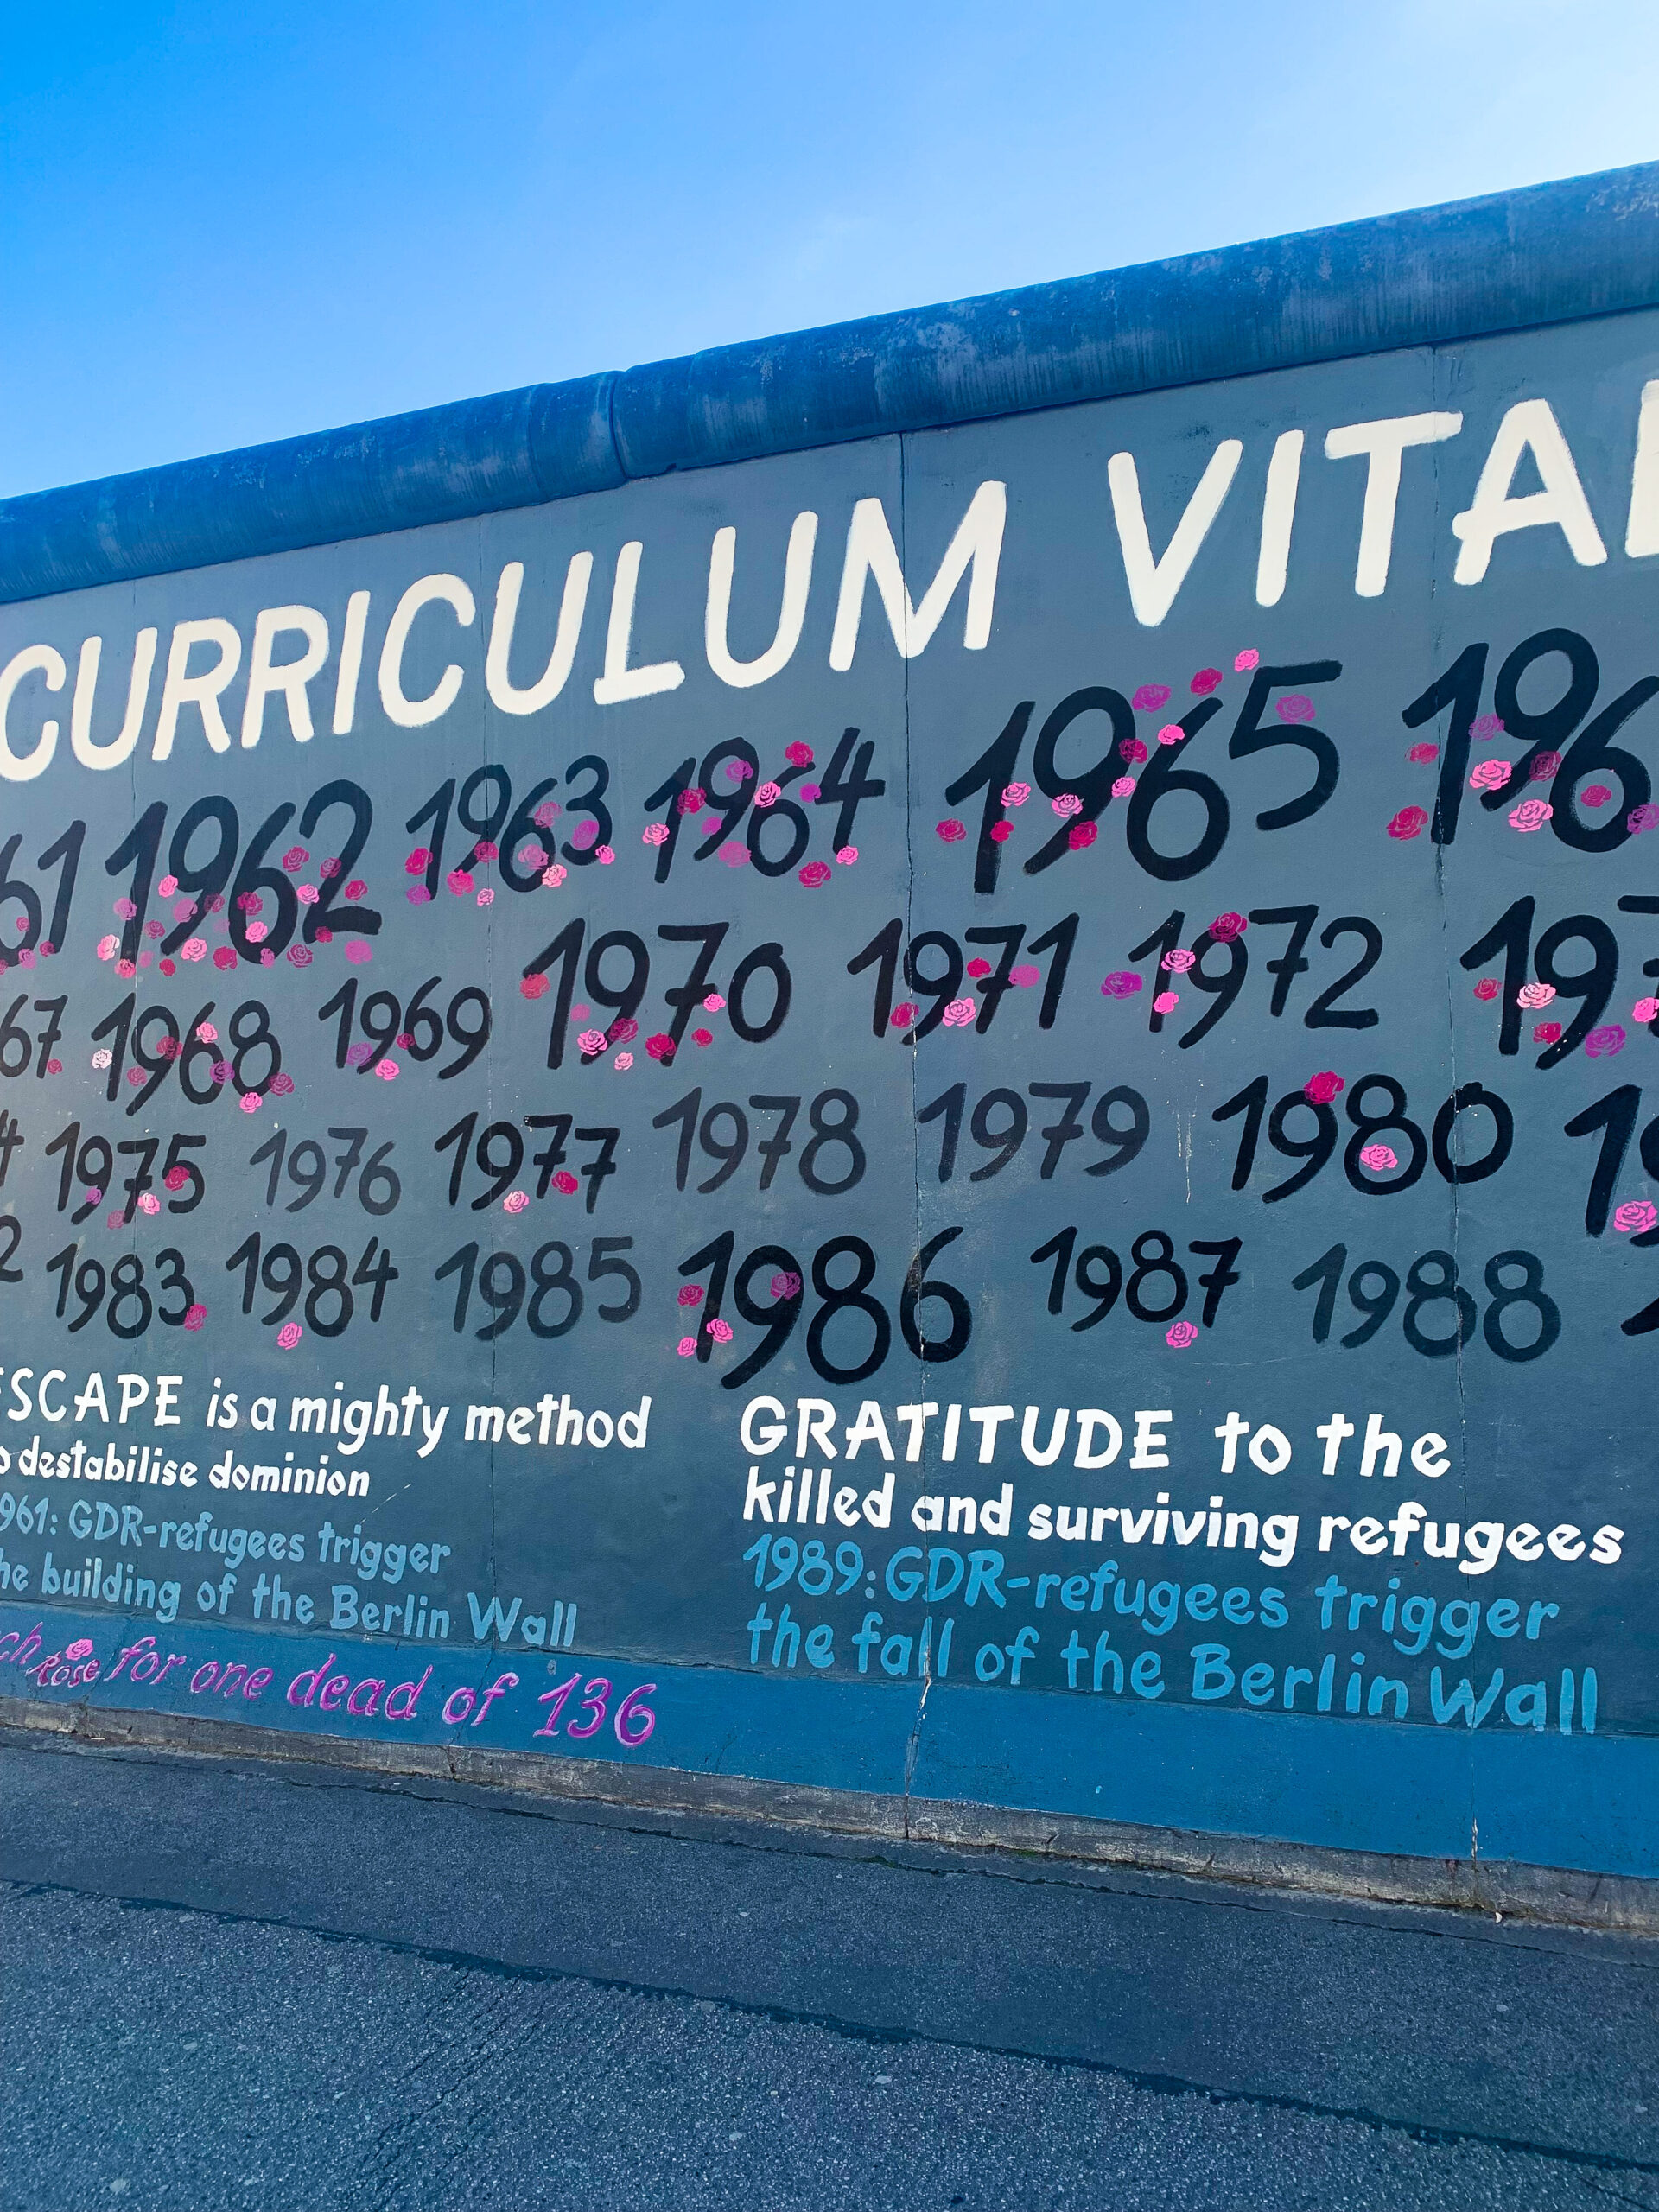 CURRICULUM VITAE
61 1962 1963 1964 1965 196
67 1968 1969 1970 1971 1972 197
4 1975 1976 1977 1978 1979 1980 1
2 1983 1984 1985 1986 1987 1988
ESCAPE is a mighty method
o destabilise dominion
961: GDR-refugees trigger
he building of the Berlin Wall
ch Rose for one dead of 136
GRATITUDE to the
killed and surviving refugees
1989: GDR-refugees trigger
the fall of the Berlin Wall